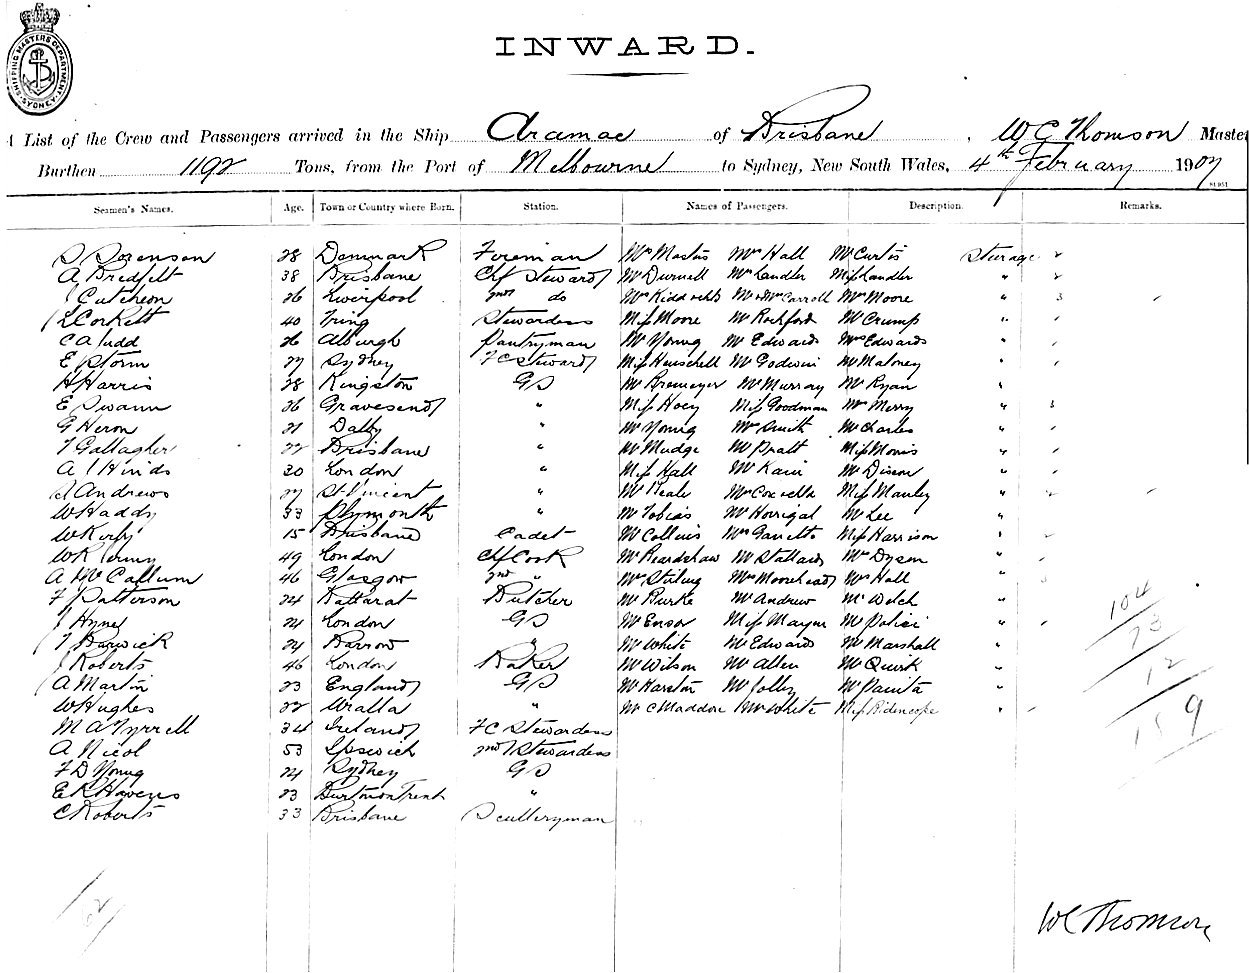 SHIPPING MASTERS DEPARTMENT SYDNEY
INWARD.
A List of the Crew and Passengers arrived in the Ship Aramac of Brisbane, W C Thomson Master
Burthen 1192 Tons, from the Port of Melbourne to Sydney, New South Wales, 4th February 1907
Seamen's Names. Age. Town or Country where Born. Station. Names of Passengers. Description. Remarks.
S Sorenson 28 Denmark Foreman Mr Hall Mr Curtis Steerage
A Bredfelt 38 Brisbane Chf Steward Mr Durnell Mr Landler Miss Landler "
J Cutcheon 26 Liverpool 2nd do Mrs Moore " 3
L Corkett 40 Tring Stewardess Miss Moore Mr Rockford Mr Crump "
C A Judd 26 Pantryman Mr Young Mr Edwards Mrs Edwards "
E Storm 27 Sydney F C Steward Miss Henschell Mr Godwin Mr Maloney "
H Harris 28 Kingston GS Mr Bremeyer Mr Murray Mr Ryan "
E Swann 26 Gravesend " Miss Hoey Miss Goodman Mrs Merry " 3
G Heron 21 Dalby " Mr Young Mr Smith Mr Charles "
T Gallagher 22 Brisbane " Mr Mudge Mr Pratt Miss Morris "
A J Hinds 20 London " Miss Hall Mr Kain Mr Dixon "
Andrews 27 St Vincent " Mr Neale Miss Manley "
W Haddy 33 Plymouth " Mr Tobias Mr Horrigal Mr Lee "
W Kirby 15 Brisbane Cadet Mr Collins Miss Harrison "
W Kenny 49 London Chf Cook Mr Beardshaw Mr Stallard Mr Dyson "
A McCallum 46 Glasgow 2nd " Mr Stirling Mrs Moorehead Mrs Hall "
F Patterson 24 Ballarat Butcher Mr Burke Mr Andrew Mr Welch "
J Hynes 24 London GS Mr Ensor Miss Mayne "
T Barwick 24 Barrow " Mr White Mr Edwards Mr Marshall "
J Roberts 46 London Baker Mr Wilson Mr Allen Mr Quirk "
A Martin 23 England GS Mr Karston Mr Jolley "
W Hughes 22 Uralla " Mr White Miss "
M A Tyrrell 34 Ireland F C Stewardess
A Nicol 53 Ipswich 2nd Stewardess
F D Young 24 Sydney GS
E R Havens 23 Burton on Trent "
C Roberts 33 Brisbane Sculleryman
104
73
12
159
W C Thomson